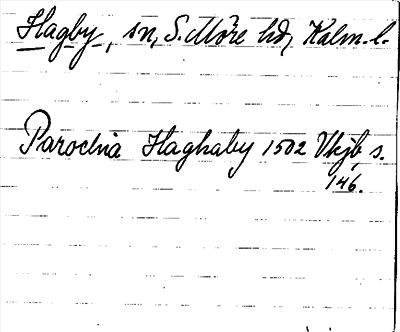 Hagby, sn, S. Möre hd, Kalm. l.
Parochia Haghaby 1502 Vkjb s.
146.